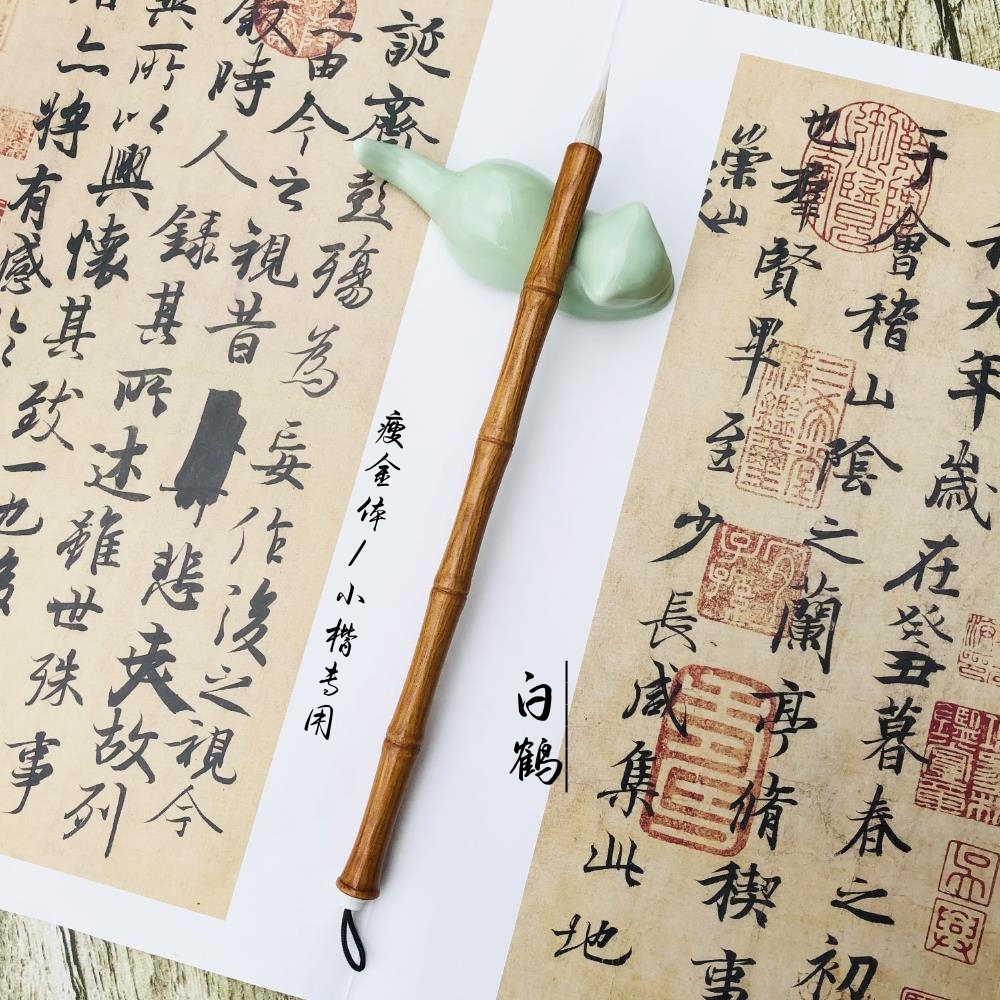 和九年歲在癸丑暮春之初
于會稽山陰之蘭亭脩稧事
也羣賢畢至少長咸集此地
崇山
誕齊彭殤為妄作後之視今
亦由今之視昔悲夫故列
敘時人錄其所述雖世殊事
異所以興懷其致一也後
亦將有感於
瘦金体/小楷专用
白鹤